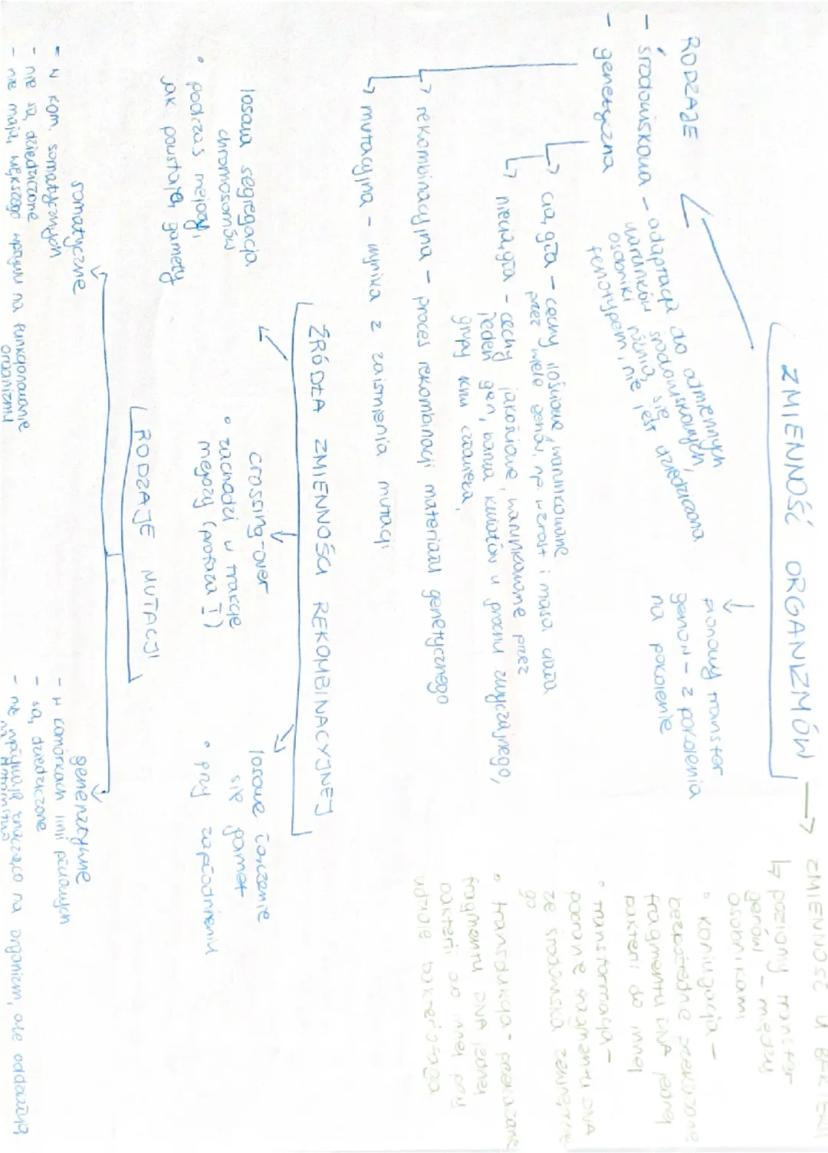 ZMIENNOŚĆ ORGANIZMÓW →
RODZAJE
- środowiskowa - adaptacja do odmiennych
warunków środowiskowych,
osobniki różnią się
fenotypem, nie jest dziedziczona
- genetyczna
↳ ciągła - cechy ilościowe warunkowane
przez wiele genów, np wzrost i masa ciała
↳ nieciągła - cechy jakościowe, warunkowane przez
jeden gen, barwa kwiatów u grochu zwyczajnego,
grupy krwi człowieka,
↳ rekombinacyjna - proces rekombinacji materiału genetycznego
↳ mutacyjna - wynika z zaistnienia mutacji
pionowy transfer
genów - z pokolenia
na pokolenie
ZMIENNOŚĆ U BAKTERII
↳ poziomy transfer
genów - między
osobnikami
• koniugacja -
bezpośrednie przekazanie
fragmentu DNA jednej
bakterii do innej
• transformacja -
pobranie fragmentu DNA
ze środowiska zewnętrzne
go
• transdukcja - przekazanie
fragmentu DNA jednej
bakterii do innej przy
udziale bakteriofaga
ŹRÓDŁA ZMIENNOŚCI REKOMBINACYJNEJ
losowa segregacja
chromosomów
• podczas mejozy,
jak powstają gamety
crossing-over
• zachodzi w trakcie
mejozy (profaza I)
losowe łączenie
się gamet
• przy zapłodnieniu
RODZAJE MUTACJI
somatyczne
- w kom. somatycznych
- nie są dziedziczone
- nie mają większego wpływu na funkcjonowanie
organizmu
generatywne
- w komórkach linii płciowych
- są dziedziczone
- nie wpływają znacząco na organizm, ale oddziałują
na potomstwo